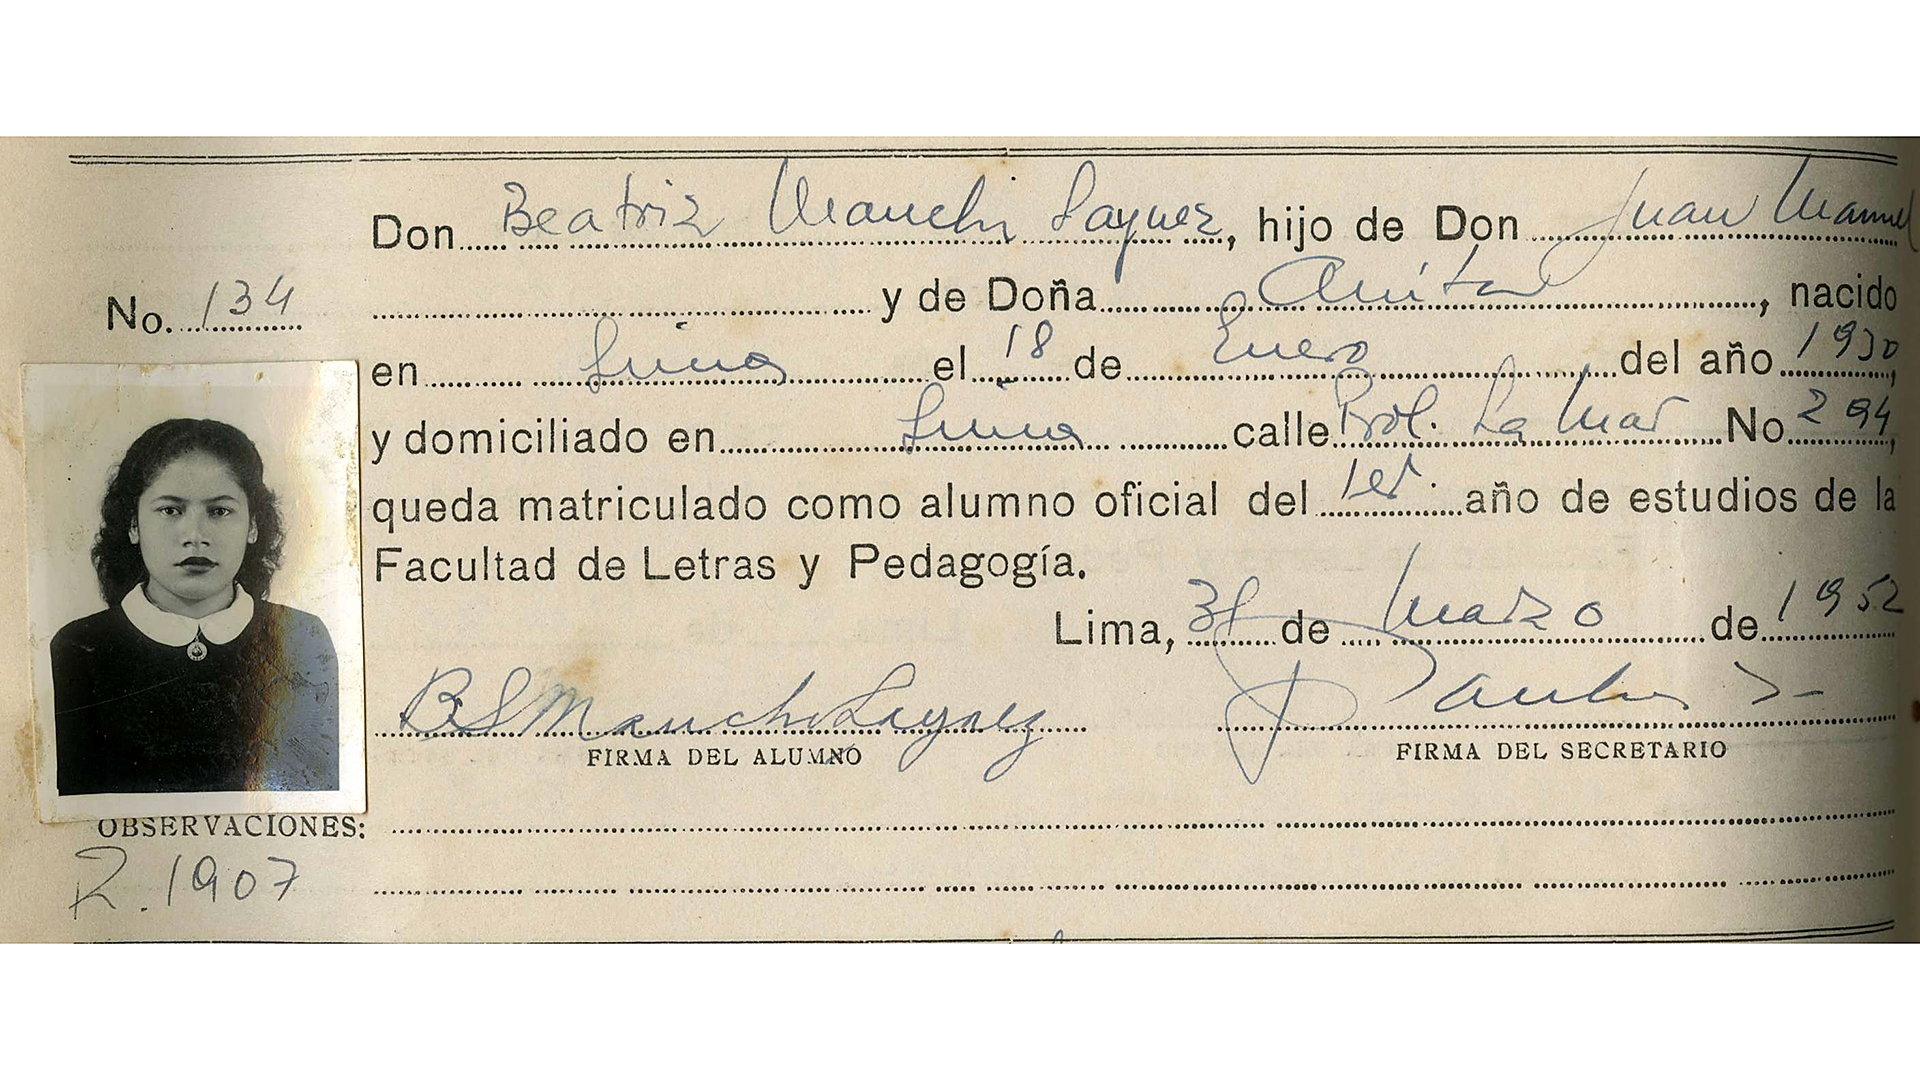 Don Beatriz Manchi Laynez, hijo de Don Juan Manuel
No. 134
y de Doña Anita, nacido
en Lima el 18 de Enero del año 1930,
y domiciliado en Lima calle Prol. La Mar No 294,
queda matriculado como alumno oficial del 1er. año de estudios de la
Facultad de Letras y Pedagogía.
Lima, 31 de Marzo de 1952
FIRMA DEL ALUMNO
FIRMA DEL SECRETARIO
OBSERVACIONES:
R. 1907